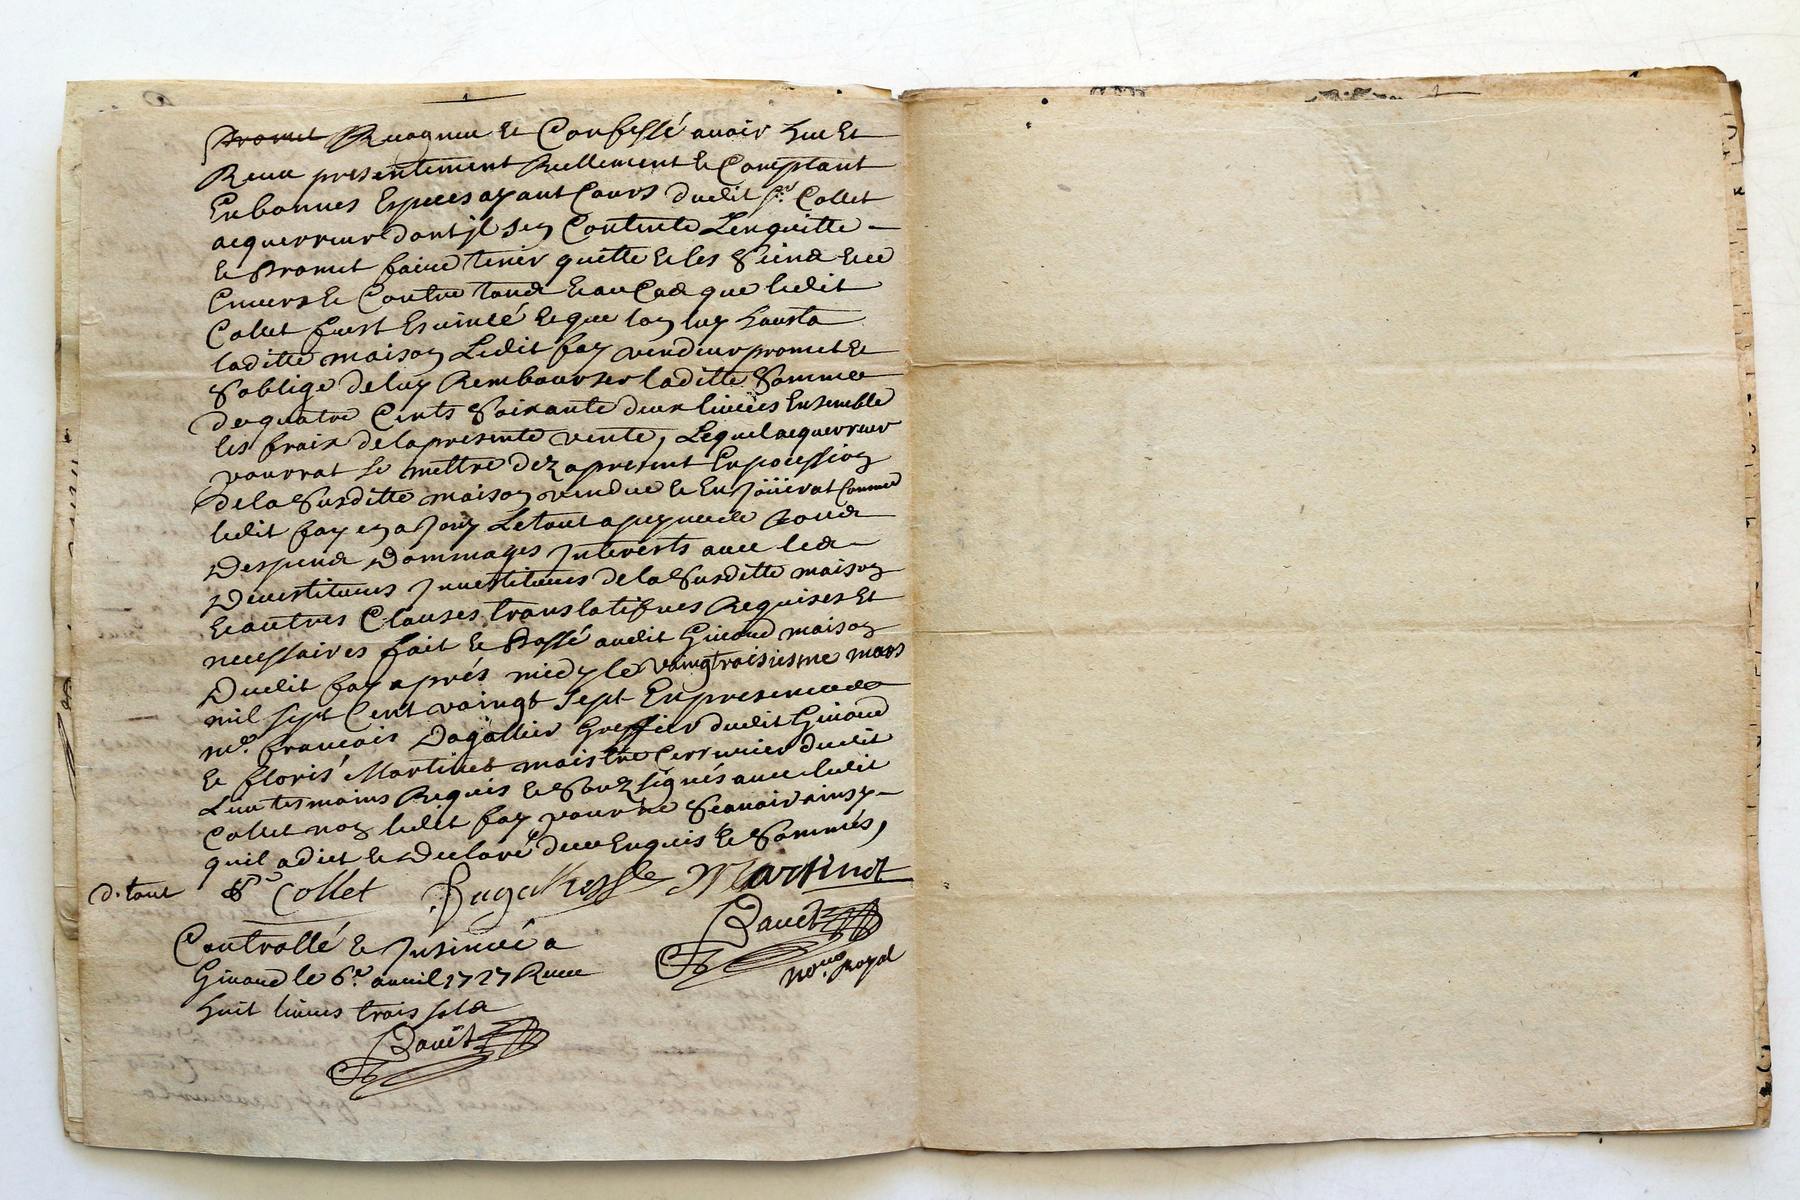 Promet Recognu et Confessé avoir heu et
Receu presentement Reellement et Comptant
En bonnes Especes ayant Cours dudit sr. Collet
acquerreur dont jl sen Contente Lenquitte
et Promet faire tenir quitte et les siens
Envers et Contre tous et au Cas que ledit
Collet fust Evincé et que lon luy
laditte maison Ledit fay vendeur promet et
soblige de luy Rembourser laditte somme
de quatre Cents soixante deux livres Ensemble
les frais de la presente vente, Lequel acquerreur
pourrat se mettre dez apresent En possession
de la susditte maison vendue et En joüirat Comme
ledit fay en a jouy Le tout a peyne de tous
Despens Dommages jnterests avec les
Devestitures jnvestitures de la susditte maison
et autres Clauses translatifves Requises et
necessaires fait et Passé audit Giuaud maison
Dudit fay aprés midy le vaingtroisiesme mars
mil sept Cent vaingt sept En presence de
me. francois Dagallier Greffier dudit Giuaud
et floris Martinet maistre Cerrurier dudit
Lieu tesmoins Requis et souz signés avec ledit
Collet non ledit fay pour ne scauoir ainsy
quil a dict et Declaré de ce Enquis et sommés,
d. tout Collet Martinet
Dauet
no. Royal
Controllé et jnsinué a
Giuaud le 6e. avril 1727 Receu
huit livres trois sols
Dauet